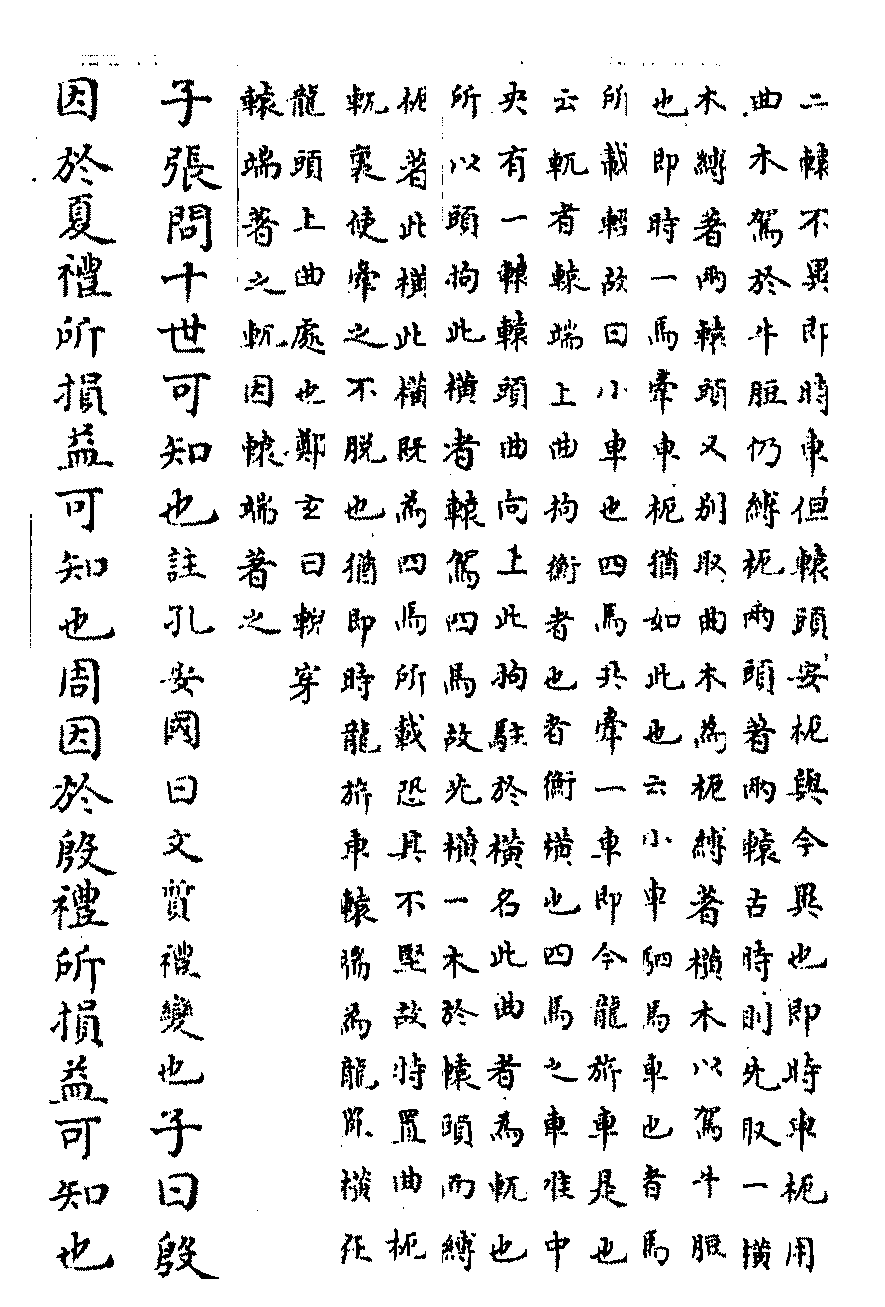 二轅不異即時車但轅頭安枙與今異也即時車枙用
曲木駕於牛脰仍縛枙兩頭著兩轅古時則先取一橫
木縛著兩轅頭又別取曲木為枙縛著橫木以駕牛脰
也即時一馬牽車枙猶如此也云小車駟馬車也者馬
所載輕故曰小車也四馬共牽一車即今龍旂車是也
云軏者轅端上曲拘衡者也者衡橫也四馬之車唯中
央有一轅轅頭曲向上此拘駐於橫名此曲者為軏也
所以頭拘此橫者轅駕四馬故先橫一木於轅頭而縛
枙著此橫此橫既為四馬所載恐其不堅故特置曲枙
軏裏使牽之不脫也猶即時龍旂車轅端為龍置橫在
龍頭上曲處也鄭玄曰輗穿
轅端著之軏因轅端著之
子張問十世可知也註孔安國曰文質禮變也子曰殷
因於夏禮所損益可知也周因於殷禮所損益可知也